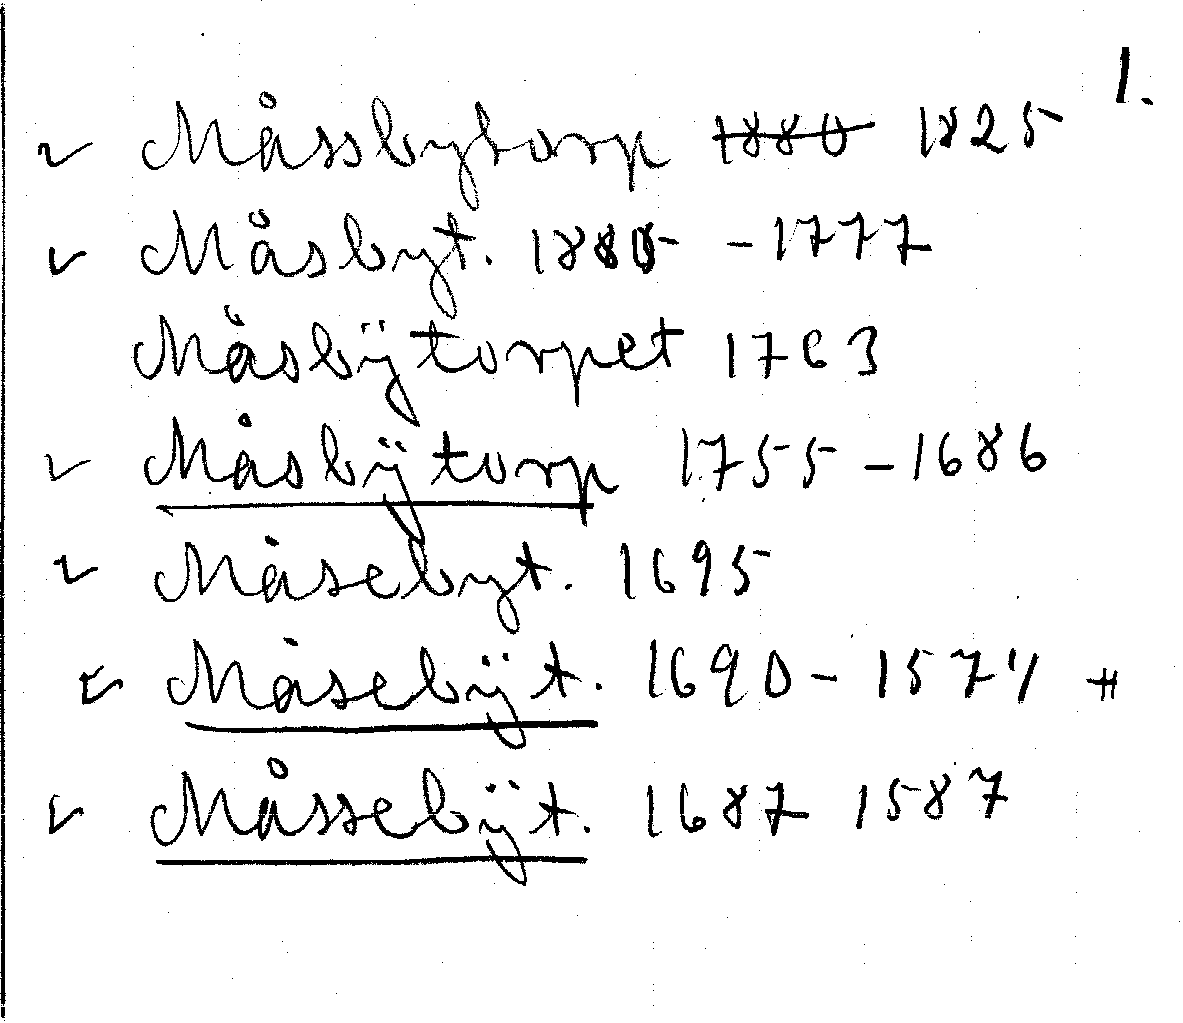 1.
✓ Måssbytorp ~~1880~~ 1825
✓ Måsbyt. 1885 - 1777
Måsbÿtorpet 1763
✓ Måsbÿtorp 1755 - 1686
✓ Måsebyt. 1695
✓ Måsebÿt. 1690 - 1574 #
✓ Måssebÿt. 1687 1587